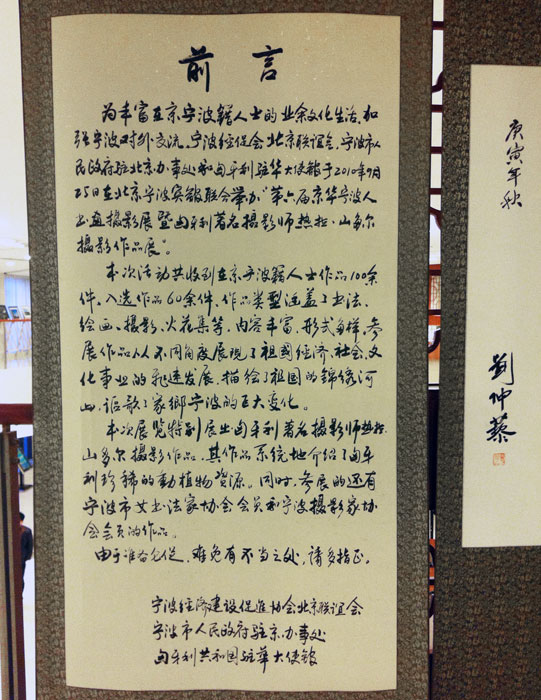 前言
为丰富在京宁波籍人士的业余文化生活，加
强宁波对外交流，宁波经促会北京联谊会、宁波市人
民政府驻北京办事处和匈牙利驻华大使馆于2010年9月
25日在北京宁波宾馆联合举办“第六届京华宁波人
书画摄影展暨匈牙利著名摄影师热拉·山多尔
摄影作品展”。
本次活动共收到在京宁波籍人士作品100余
件，入选作品60余件，作品类型涵盖了书法、
绘画、摄影、火花集等，内容丰富，形式多样，参
展作品从不同角度展现了祖国经济、社会、文
化事业的飞速发展，描绘了祖国的锦绣河
山，讴歌了家鄉宁波的巨大变化。
本次展览特别展出匈牙利著名摄影师热拉·
山多尔摄影作品，其作品系统地介绍了匈牙
利珍稀的動植物资源。同时，参展的还有
宁波市女书法家协会会员和宁波摄影家协
会会员的作品。
由于准备仓促，难免有不当之处，请多指正。
宁波经济建设促进协会北京联谊会
宁波市人民政府驻京办事处
匈牙利共和国驻華大使馆
庚寅年秋
劉仲蔡